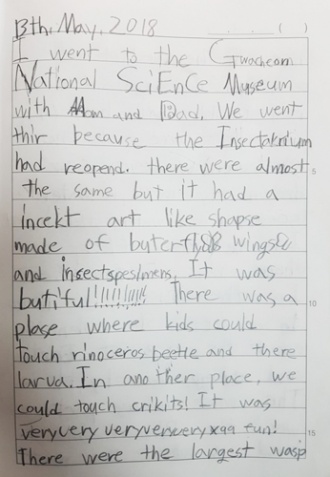 13th, May, 2018 ( )
I went to the Gwacheom
National SciEnCe Museum
with Mom and Dad. We went
thir because the Insectakrium
had reopend. there were almost
the same but it had a
incekt art like shapse
made of buterflys wings
and insectspesimens. It was
butiful!!!!!!!!!! There was a
10
plase where kids could
touch rinoceros beetle and there
larva. In another place, we
could touch crikits! It was
veryvery veryververyx99 fun!
15
There were the largest wasp